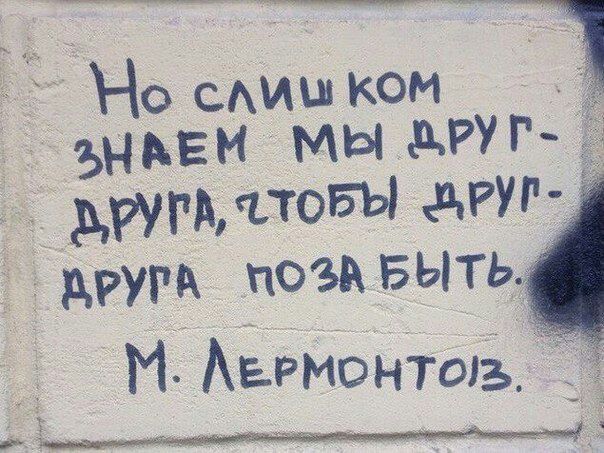 Но слишком
знаем мы друг-
друга, чтобы друг-
друга позабыть.
М. Лермонтов.